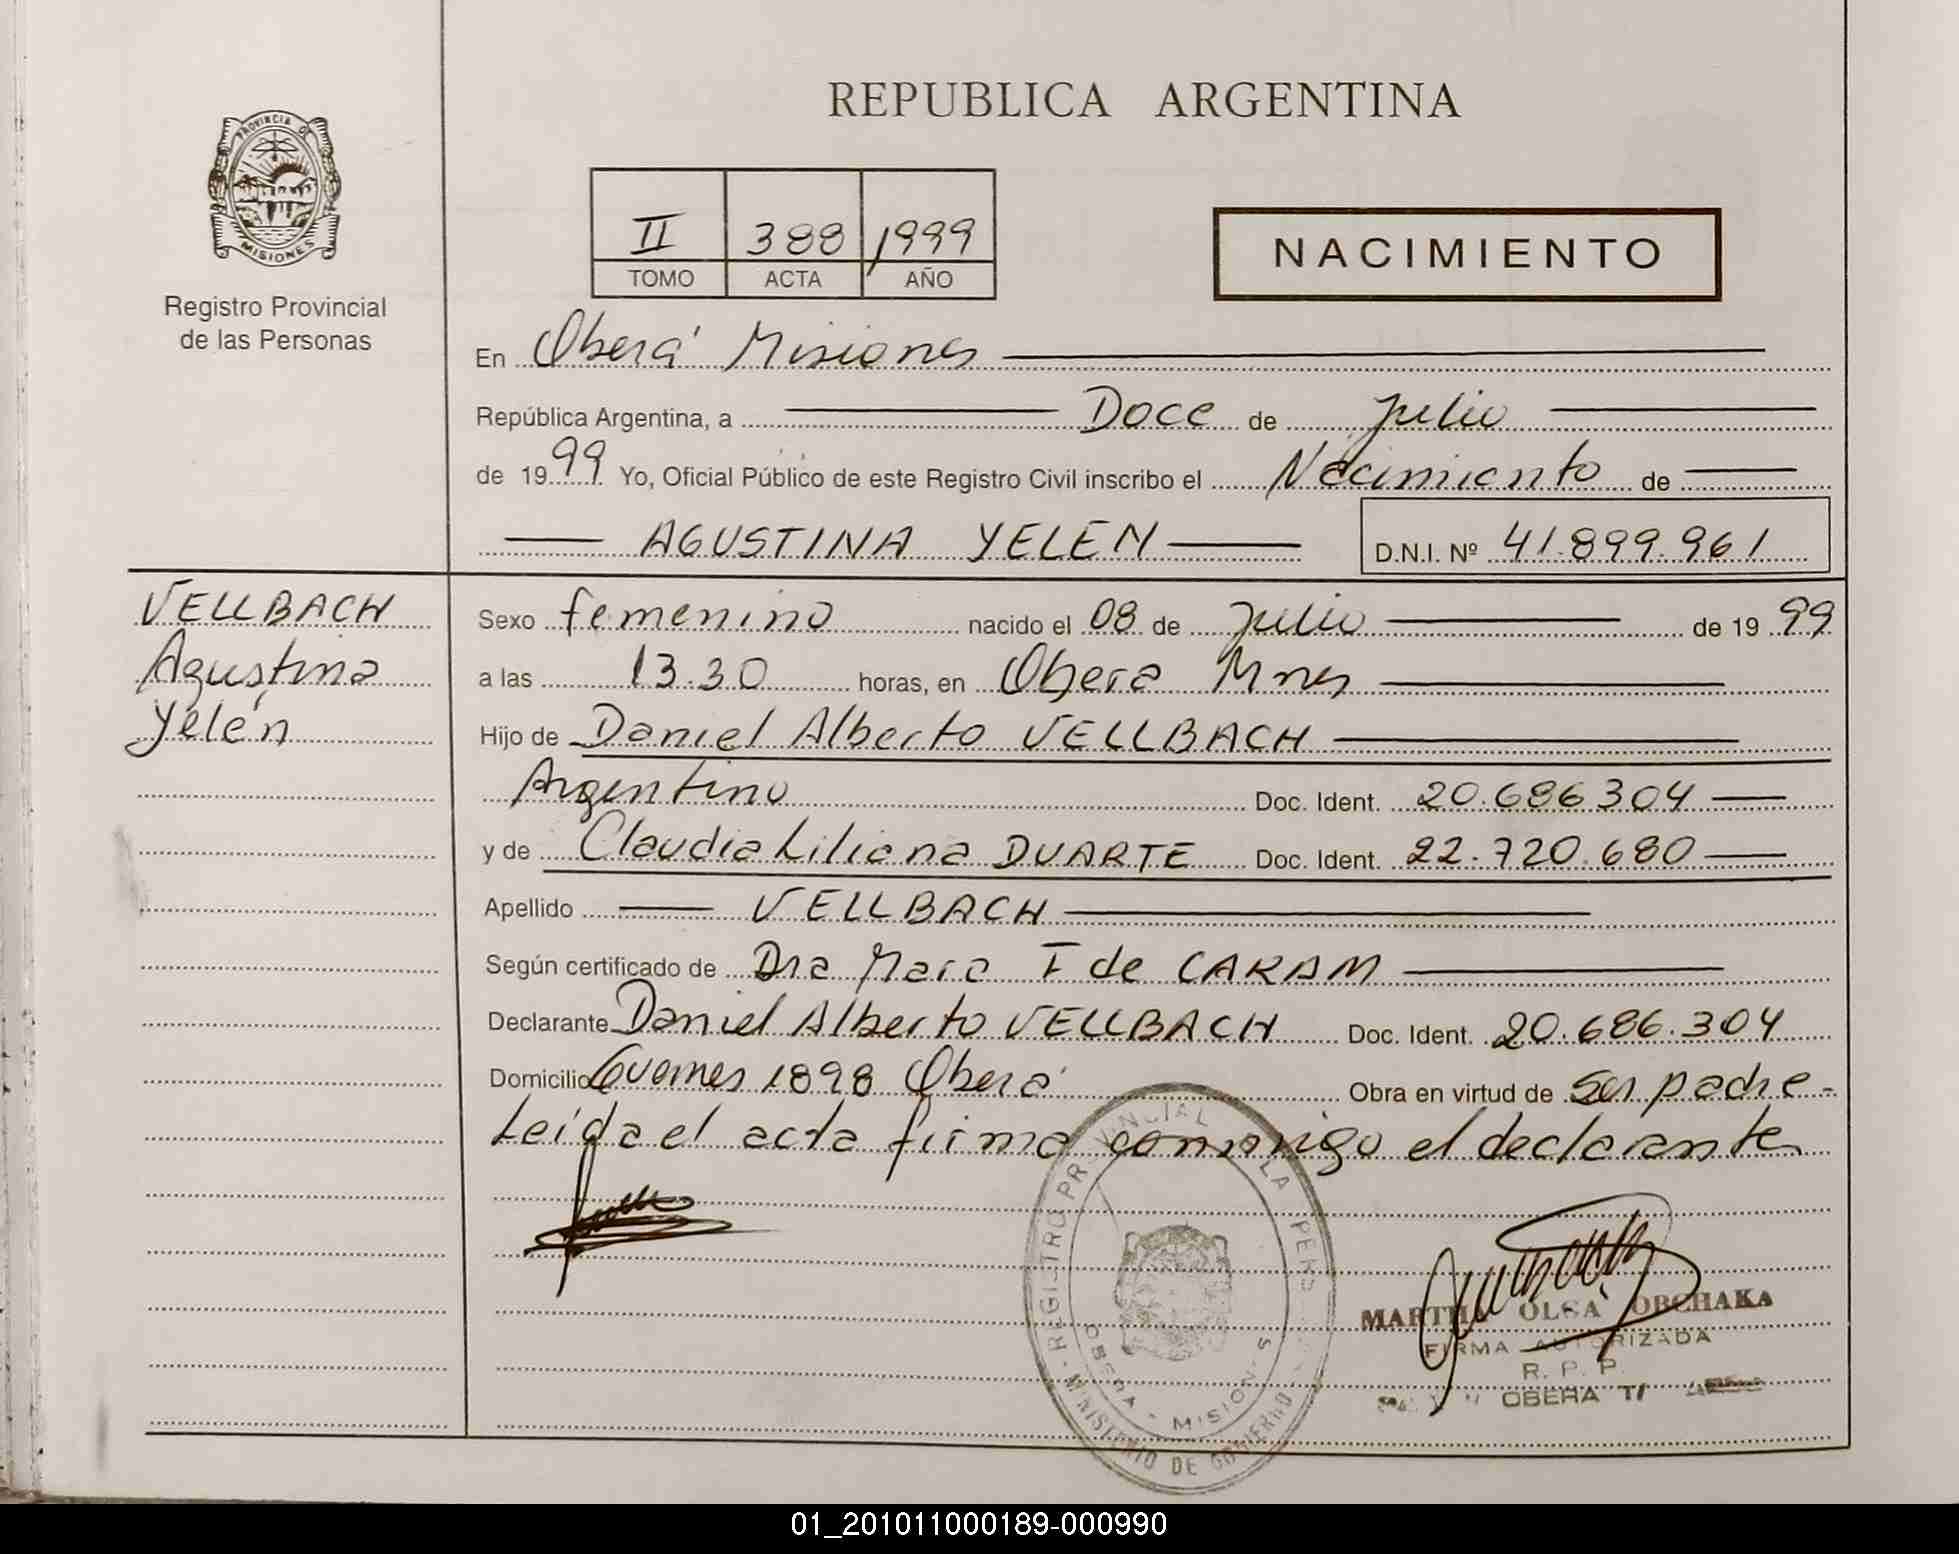 REPUBLICA ARGENTINA
PROVINCIA DE
MISIONES
Registro Provincial
de las Personas
II 388 1999
TOMO ACTA AÑO
NACIMIENTO
En Oberá Misiones
República Argentina, a Doce de Julio
de 1999 Yo, Oficial Público de este Registro Civil inscribo el Nacimiento de
AGUSTINA YELEN D.N.I. Nº 41.899.961
VELLBACH
Agustina
Yelén
Sexo femenino nacido el 08 de Julio de 1999
a las 13.30 horas, en Obera Mnes
Hijo de Daniel Alberto VELLBACH
Argentino Doc. Ident. 20.686.304
y de Claudia Liliana DUARTE Doc. Ident. 22.720.680
Apellido VELLBACH
Según certificado de Dra Mara I de CARAM
Declarante Daniel Alberto VELLBACH Doc. Ident. 20.686.304
Domicilio Guemes 1898 Oberá Obra en virtud de ser padre.-
Leída el acta firma conmigo el declarante
REGISTRO PROVINCIAL LA PERS
OBERA - MISIONES
MINISTERIO DE GOBIERNO
MARTHA OLGA OBCHAKA
FIRMA AUTORIZADA
R. P. P.
OBERA
01_201011000189-000990